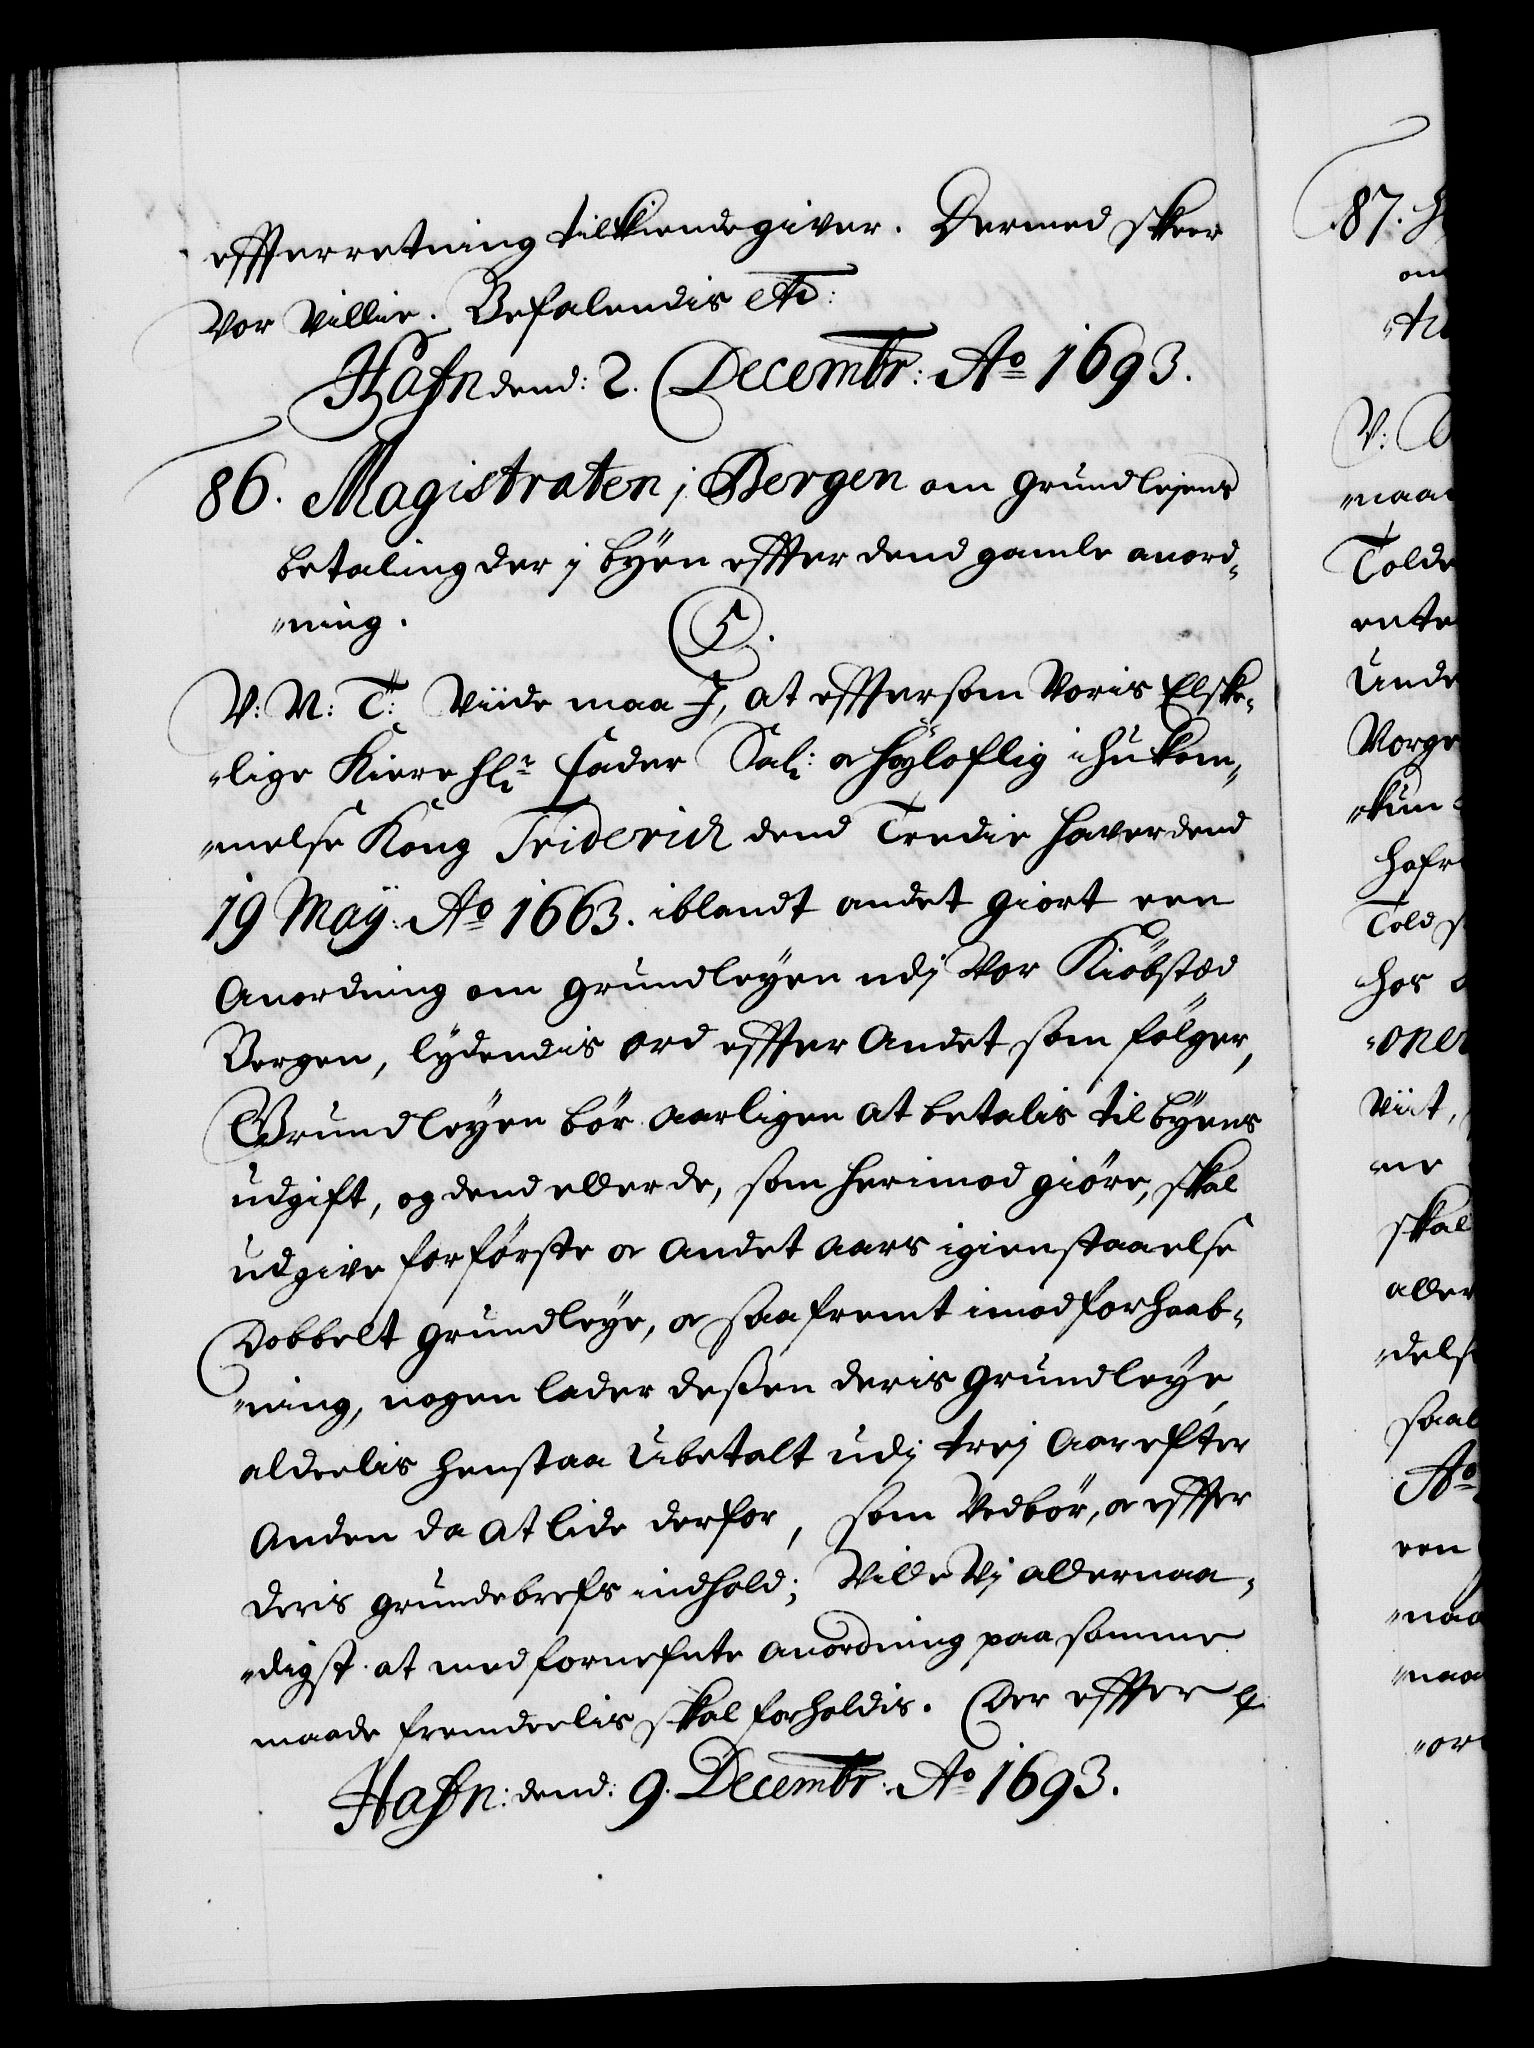 effterretning tilkiendegiver. Dermed skeer
Vor Villie. Befalendis etc:
Hafn dend: 2. Decembr: Ao 1693.
86. Magistraten j Bergen om grundlejens
betaling der j byen effter dend gamle anord-
-ning.
C 5.
V: N: T: Viide maa I, at effter som Voris Elske-
-lige Kiere Hr Fader Sal: oc høyloflig ihukom-
-melse Kong Friderich dend Tredie haver dend
19 Maij: Ao 1663. iblandt andet giort een
Anordning om grundleyen udj Vor Kiöbstæd
Bergen, lydendis ord effter Andet som fölger,
Grundleyen bör aarligen at betalis til byens
udgift, og dend eller de, som herimod giöre, skal
udgive for förste oc andet aars igienstaaelse
Dobbelt grundleye, oc saa fremt imod forhaab-
-ning, nogen lader deßen deris grundleye
aldeelis henstaa Ubetalt udj trej Aar efter
Anden da at lide derfor, som Vedbör, oc effter
deris grundebrefs indhold; Ville Vj allernaa-
-digst at med fornefnte anordning paa samme
maade fremdeelis skal forholdis. Der effter p
Hafn: dend: 9. Decembr: Ao 1693.
87. H
om
V:
maa
Tolde
ente
Unde
Vorge
-kun
hafr
Told s
hos
-oner
viit,
-ne
skal
aller
-dels
saal
Ao
een
-naa
-naa
-or